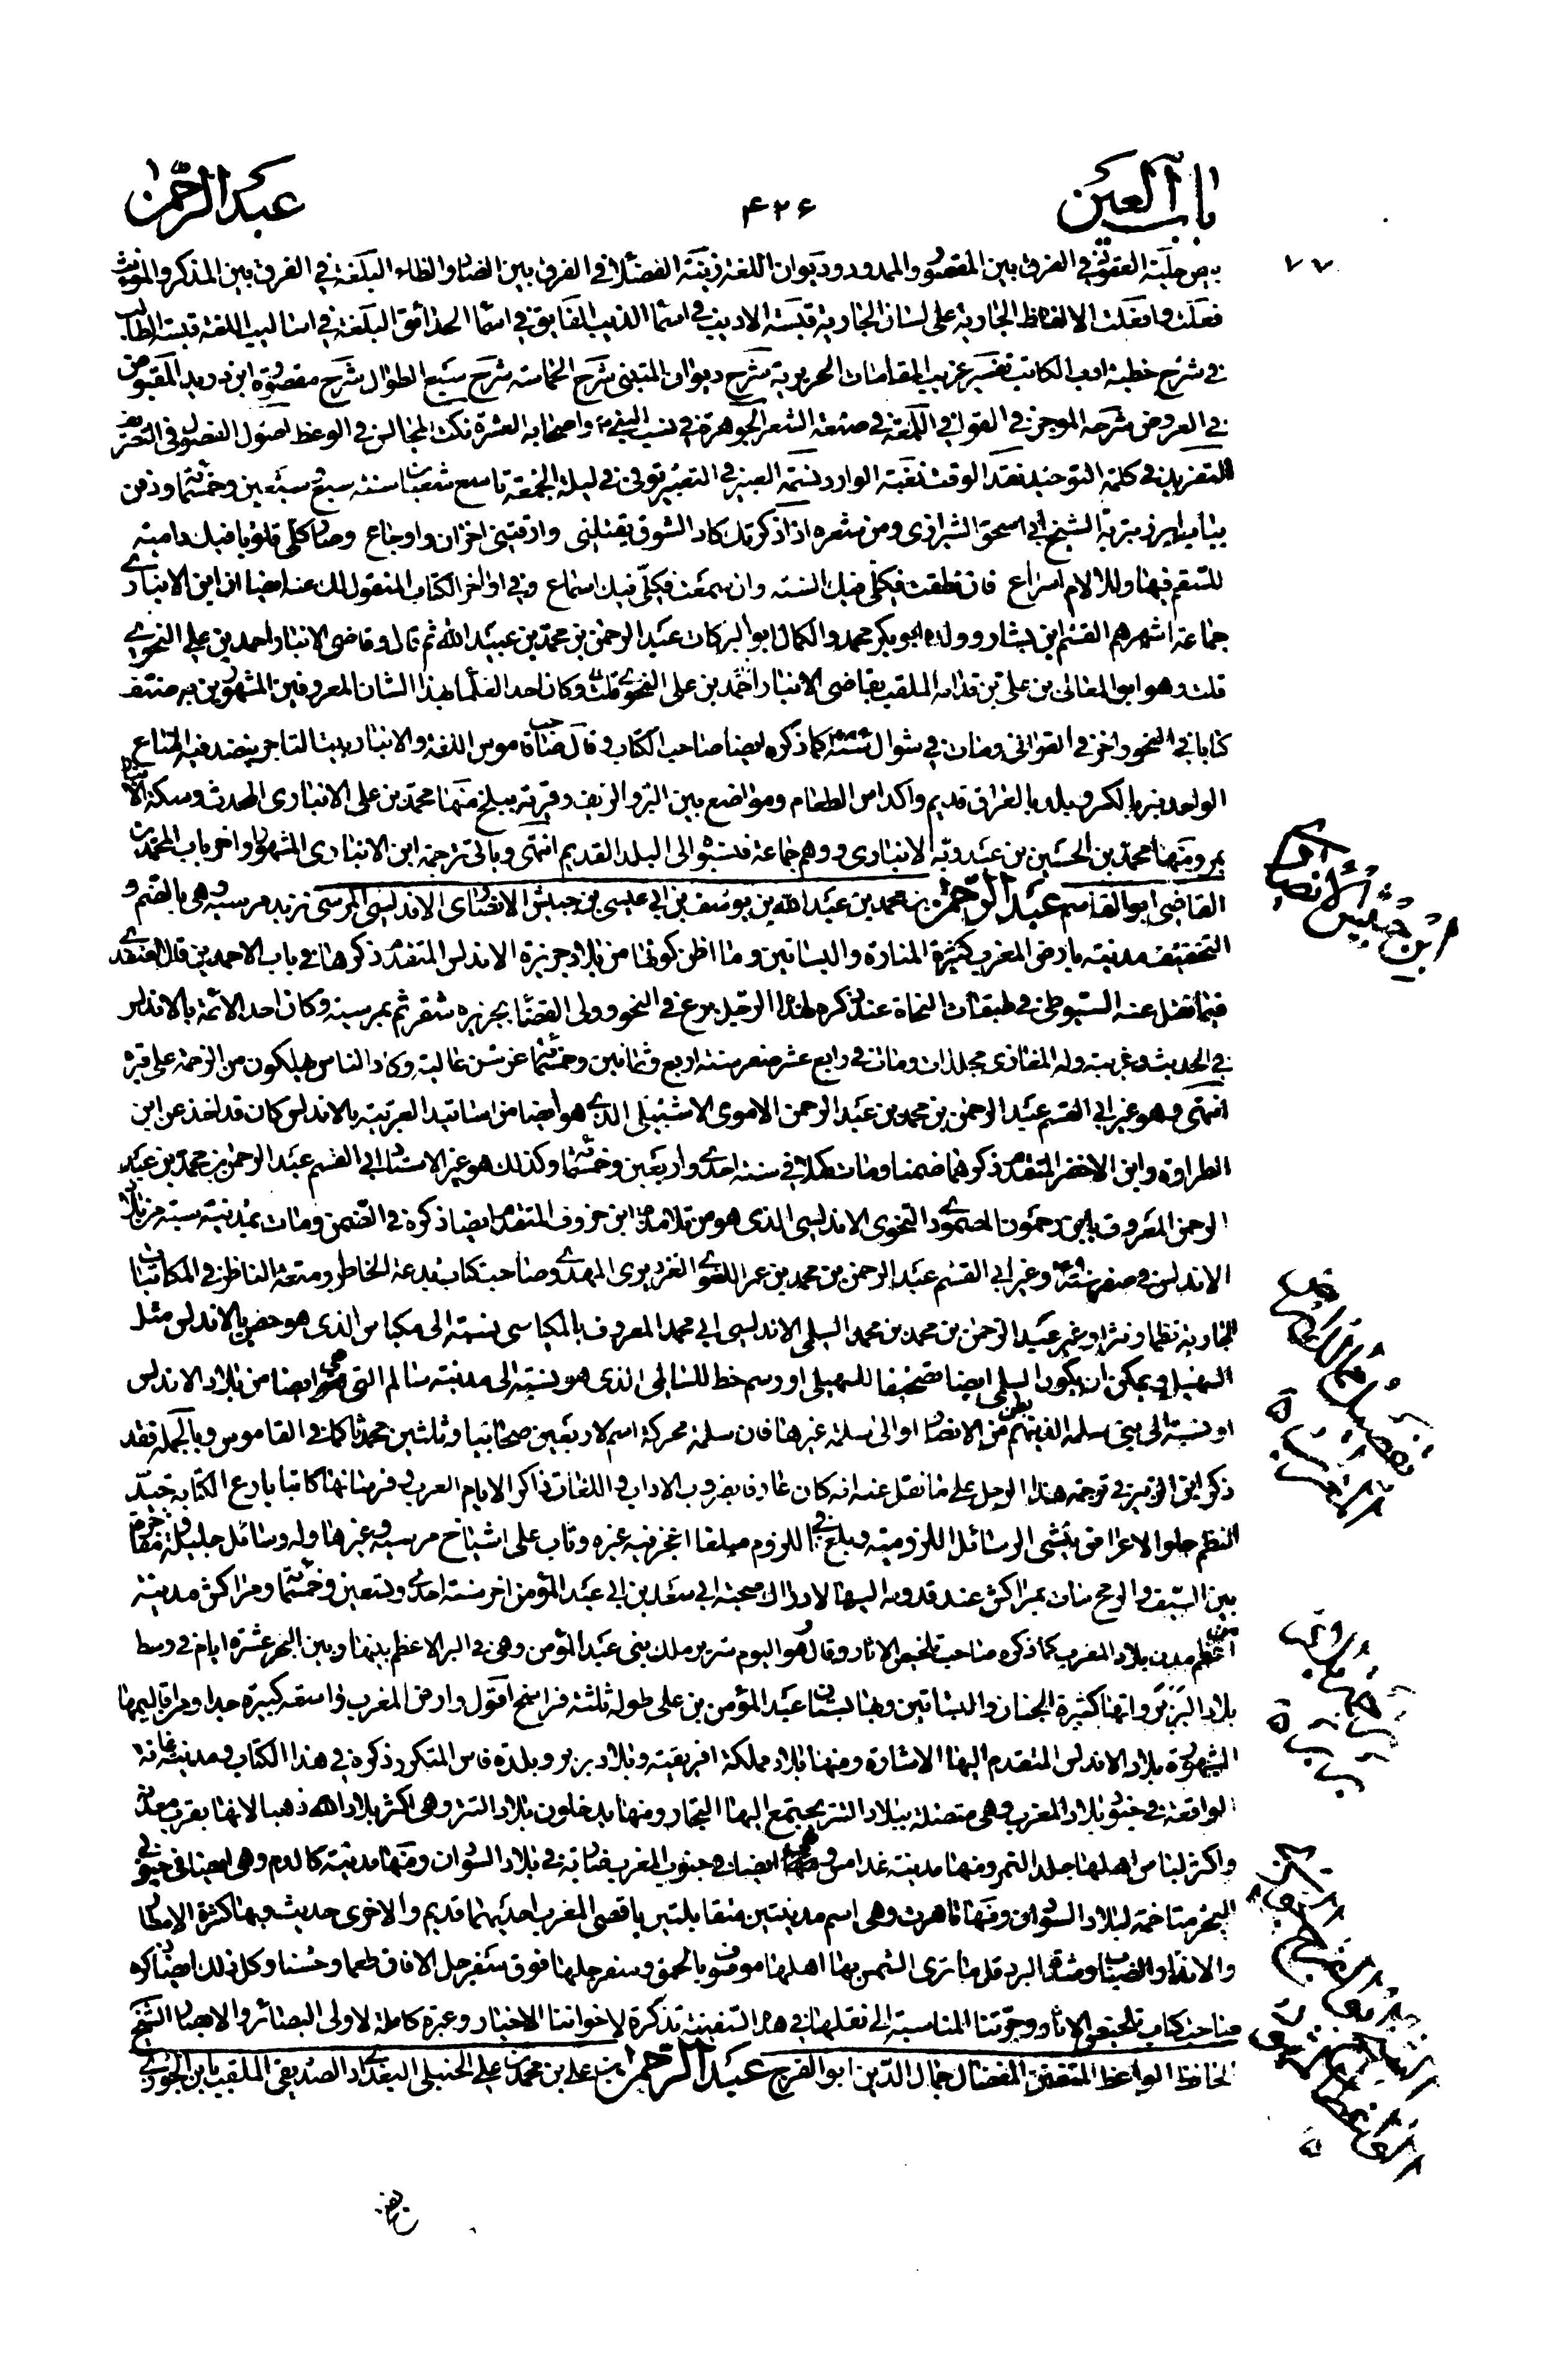 باب العين
۴۲۶
عبد الرحمن
۷۷
حلية العقود في الفرق بين المقصور والممدود وديوان اللغة زينة الفضلا في الفرق بين الضاد والظاء البلغة في الفرق بين المذكر والمؤنث
فعلت وافعلت الالفاظ الجارية على لسان الجارية قبسة الاديب في اسما الذيب الفايق في اسما الحذائق البلغة في اساليب اللغة قبسة الطالب
في شرح خطبة ادب الكاتب تفسير غريب المقامات الحريرية شرح ديوان المتنبي شرح الحماسة شرح سبع الطوال شرح مقصورة ابن دريد المقبوض
في العروض شرحه الموجز في القوافي اللمعة في صنعة الشعر الجوهرة في نسب النبي واصحابه العشرة نكت المجالس في الوعظ اصول الفصول في التصوف
التفريد في كلمة التوحيد نقد الوقت نغبة الوارد نسمة العبير في التعبير توفي في ليلة الجمعة تاسع شعبان سنة سبع سبعين وخمسمائة ودفن
بباب ابرز بتربة الشيخ ابي اسحق الشيرازي ومن شعره اذا ذكرتك كاد الشوق يقتلني وارقتني احزان واوجاع وصار كلي قلوبا فيك دامية
للسقم فيها وللآلام اسراع فان نطقت فكلي فيك السنة وان سمعت فكلي فيك اسماع وفي اواخر الكتاب المنقول لك عنه ايضا ان ابن الانباري
جماعة اشهرهم القسم ابن بشار وولده ابو بكر محمد والكمال ابو البركات عبد الرحمن بن محمد بن عبيد الله ثم قال وقاضي الانبار احمد بن علي النحوي
قلت وهو ابو المعالي بن علي بن قدامه الملقب بقاضي الانبار احمد بن علي النحوي قلت وكان احد العلما لهذا الشان المعروفين المشهورين به صنف
كتابا في النحو واخر في القوافي ومات في شوال كما ذكره ايضا صاحب الكتاب وقال صاحب قاموس اللغة والانبار بيت التاجر ينضد فيه المتاع
الواحد نبر بالكسر وبلد بالعراق قديم واكداس الطعام ومواضع بين البر والريف وقرية ببلخ منها محمد بن علي الانباري المحدث وسكة الانبار
بمرو منها محمد بن الحسين بن عبدويه الانباري ووهم جماعة فنسبوا الى البلد القديم انتهى وياتي ترجمة ابن الانباري المشهور اواخر باب المحمدين
القاضي ابو القاسم عبد الرحمن بن محمد بن عبد الله بن يوسف بن ابي عيسى بن حبيش الانصاري الاندلسي المرسي نزيل مرسيه وهي بالضم و
التخفيف مدينة بارض المغرب كثيرة المنازه والبساتين وما اظن كونها من بلاد جزيرة الاندلس المتقدم ذكرها في باب الاحمدين قال
فيما نقل عنه السيوطي في طبقات النحاة عند ذكره لهذا الرجل برع في النحو وولى القضا بجزيره شقر ثم بمرسية وكان احد الائمة بالاندلس
في الحديث وغريبه وله المغازي مجلدات ومات في رابع عشر صفر سنة اربع وثمانين وخمسمائة عن سن عالية وكاد الناس يهلكون من الزحمة على قبره
انتهى وهو غير ابي القسم عبد الرحمن بن محمد بن عبد الرحمن الاموي الاشبيلي الذي هو ايضا من اساتيد العربية بالاندلس كان قد اخذ عن ابن
الطراوة وابن الاخضر المتقدم ذكرهما ضمنا ومات في سنة احدى واربعين وخمسمائة وكذلك هو غير الاستاد ابي القسم عبد الرحمن بن محمد بن عبد
الرحمن المعروف بابن رحمون المصمودي النحوي الاندلسي الذي هو من تلامذة ابن خروف المتقدم ايضا ذكره في الضمن ومات بمدينة سبتة من بلاد
الاندلس في صفر وغير ابي القسم عبد الرحمن بن محمد بن عمر اللغوي المهدي وصاحب كتاب بدعة الخاطر ومتعة الناظر في المكاتبات
الجارية نظما ونثرا وغير عبد الرحمن بن محمد بن محمد السلمي الاندلسي ابي محمد المعروف بالمكناسي نسبة الى مكناس الذي هو حصن بالاندلس مثل
السهيل ويمكن ان يكون السلمي ايضا تصحيفا للسهيلي او رسم خط للسالمي الذي هو نسبة الى مدينة سالم التي هي ايضا من بلاد الاندلس
او نسبة الى بني سلمة الذينهم بطن من الانصار او الى سلمة غيرها فان سلمة محركة اسم لاربعين صحابيا وثلثين محدثا كما في القاموس وبالجملة فقد
ذكر ابن الزبير في ترجمة هذا الرجل على ما نقل عنه انه كان عارفا بضروب الاداب واللغات ذاكرا لايام العرب وفرسانها كاتبا بارع الكتابة جيد
النظم حلو الاغراض ينشي الرسائل اللزومية ويبلغ في اللزوم مبلغا اعجز فيه غيره وتاب على اشياخ مرسيه وغيرها وله رسائل جليلة
بين السيف والرمح مات بمراكش عند قدومه اليها صحبة ابي سعد بن ابي عبد المؤمن اخر سنة احدى وتسعين وخمسمائة ومراكش مدينة
من اعظم مدن بلاد المغرب كما ذكره صاحب تلخيص الاثار وقال هو اليوم سرير ملك بني عبد المؤمن وهي في البر الاعظم بينها وبين البحر عشرة ايام في وسط
بلاد البربر وانها كثيرة الجنان والبساتين وبها بستان عبد المؤمن بن علي طوله ثلثة فراسخ اقول وارض المغرب واسعة كبيرة جدا ومن اقاليمها
الشهيرة بلاد الاندلس المتقدم اليها الاشارة ومنها بلاد مملكة افريقية وبلاد بربر وبلدة فاس المتكرر ذكره في هذا الكتاب ومدينة غانة
الواقعة في جنوب بلاد المغرب وهي متصلة ببلاد التبر يجتمع اليها التجار ومنها يدخلون بلاد التبر وهي اكثر بلاد الله ذهبا لانها بقرب معدنه
واكثر لباس اهلها جلد النمر ومنها مدينة غدامس وهي ايضا في جنوب المغرب ضاربة في بلاد السودان ومنها مدينة كالدم وهي ايضا في جنوبي
البحر متاخمة لبلاد السودان ومنها تاهرت وهي اسم مدينتين متقابلتين باقصى المغرب احديهما قديم والاخرى حديث وبها كثرة الامطار
والانداء والضباب وشدة البرد قل ما ترى الشمس بها اهلها موصوفون بالحمق وسفرجلها فوق سفرجل الافاق طعما وحسنا وكل ذلك ايضا ذكره
صاحب كتاب تلخيص الاثار وجرتنا المناسبة الى نقلها في هذه السفينة تذكرة لاخواننا الاخيار وعبرة كاملة لاولى البصائر والابصار الشيخ
الحافظ الواعظ المتقن المفضال جمال الدين ابو الفرج عبد الرحمن بن علي بن محمد بن علي الحنبلي البغدادي الصديقي الملقب بابن الجوزي
ابن حبيش الانصاري